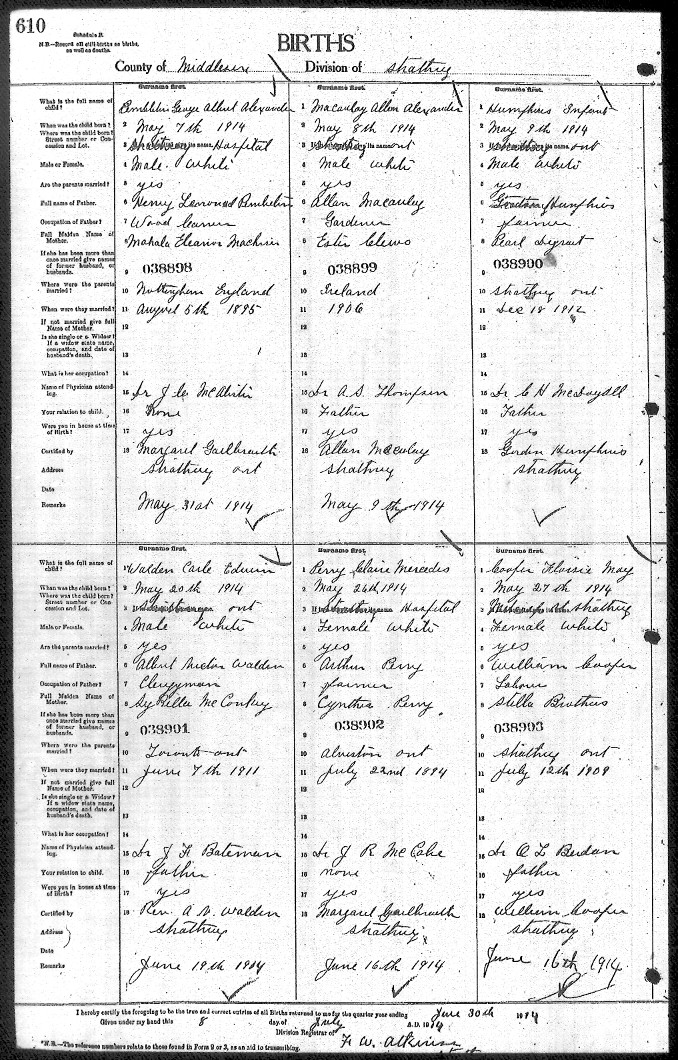 610
Schedule B.
N.B.—Record all still births as births, as well as deaths.
BIRTHS
County of Middlesex Division of Strathroy
Surname first. Surname first. Surname first.
What is the full name of child? 1 George Albert Alexander 1 Macaulay Allan Alexander 1 Humphries Infant
When was the child born? 2 May 7th 1914 2 May 8th 1914 2 May 9th 1914
Where was the child born? Street number or Concession and Lot. 3 Hospital 3 ont 3 ont
Male or Female. 4 Male White 4 Male White 4 Male White
Are the parents married? 5 yes 5 yes 5 yes
Full name of Father. 6 Henry 6 Allan Macauley 6 Humphries
Occupation of Father? 7 Wood Carver 7 Gardener 7 farmer
Full Maiden Name of Mother. 8 Mahala Eleanor 8 Ester Clews 8 Pearl
If she has been more than once married give names of former husband, or husbands. 9 038898 9 038899 9 038900
Where were the parents married? 10 Nottingham England 10 Ireland 10 Strathroy ont
When were they married? 11 August 5th 1895 11 1906 11 Dec 18 1912
If not married give full Name of Mother. 12 12 12
Is she single or a Widow? If a widow state name, occupation, and date of husband's death. 13 13 13
What is her occupation? 14 14 14
Name of Physician attending. 15 Dr J C 15 Dr A. S. Thompson 15 Dr C H McDougall
Your relation to child. 16 None 16 Father 16 Father
Were you in house at time of Birth? 17 yes 17 yes 17 yes
Certified by 18 Margaret Gailbraith 18 Allan Macaulay 18 Gordon Humphries
Address Strathroy ont Strathroy Strathroy
Date
Remarks May 31st 1914 May 9th 1914
Surname first. Surname first. Surname first.
What is the full name of child? 1 Walden Carle Edwin 1 Perry Claire Mercedes 1 Cooper Flossie May
When was the child born? 2 May 20th 1914 2 May 26th 1914 2 May 27th 1914
Where was the child born? Street number or Concession and Lot. 3 ont 3 Hospital 3 Strathroy
Male or Female. 4 Male White 4 Female White 4 Female White
Are the parents married? 5 yes 5 yes 5 yes
Full name of Father. 6 Albert Walden 6 Arthur Perry 6 William Cooper
Occupation of Father? 7 Clergyman 7 farmer 7 Labour
Full Maiden Name of Mother. 8 McConkey 8 Cynthia Perry 8 Stella Brothers
If she has been more than once married give names of former husband, or husbands. 9 038901 9 038902 9 038903
Where were the parents married? 10 Toronto ont 10 Alvinston ont 10 Strathroy ont
When were they married? 11 June 7th 1911 11 July 22nd 1894 11 July 12th 1909
If not married give full Name of Mother. 12 12 12
Is she single or a Widow? If a widow state name, occupation, and date of husband's death. 13 13 13
What is her occupation? 14 14 14
Name of Physician attending. 15 Dr J F Bateman 15 Dr J R McCabe 15 Dr O L Berdan
Your relation to child. 16 father 16 none 16 father
Were you in house at time of Birth? 17 yes 17 yes 17 yes
Certified by 18 Rev. A V. Walden 18 Margaret Gailbraith 18 William Cooper
Address Strathroy Strathroy Strathroy
Date
Remarks June 19th 1914 June 16th 1914 June 16th 1914
I hereby certify the foregoing to be the true and correct entries of all Births returned to me for the quarter year ending June 30th 1914
Given under my hand this 8 day of July A.D. 1914
Division Registrar of F. W. Atkinson
*N.B.—The reference numbers relate to those found in Form 2 or 3, as an aid to transcribing.